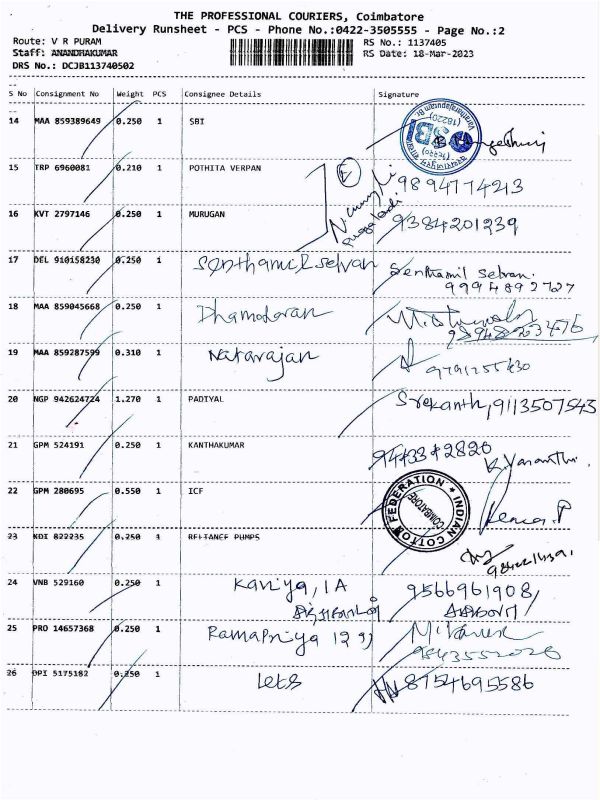 THE PROFESSIONAL COURIERS, Coimbatore
Delivery Runsheet - PCS - Phone No.:0422-3505555 - Page No.:2
Route: V R PURAM RS No.: 1137405
Staff: ANANDHAKUMAR RS Date: 18-Mar-2023
DRS No.: DCJB113740502
S No Consignment No Weight PCS Consignee Details Signature
14 MAA 859389649 0.250 1 SBI
SBI (18220)
15 TRP 6960081 0.210 1 POTHITA VERPAN 9894774213
16 KVT 2797146 0.250 1 MURUGAN 9384201239
17 DEL 910158230 0.250 1 Senthamil selvan Senthamil selvan.
9994892727
18 MAA 859045668 0.250 1 Dhamotaran
19 MAA 859287599 0.310 1 Natarajan
20 NGP 942624724 1.270 1 PADIYAL Srekanth, 9113507545
21 GPM 524191 0.250 1 KANTHAKUMAR
22 GPM 280695 0.550 1 ICF
INDIAN COTTON FEDERATION COIMBATORE
23 KDI 822235 0.250 1 RELIANCE PUMPS
24 VNB 529160 0.250 1 Kaniya, IA 9566961908
25 PRO 14657368 0.250 1 Ramapriya
9843552028
26 DPI 5175182 0.250 1 Lets 8754695586